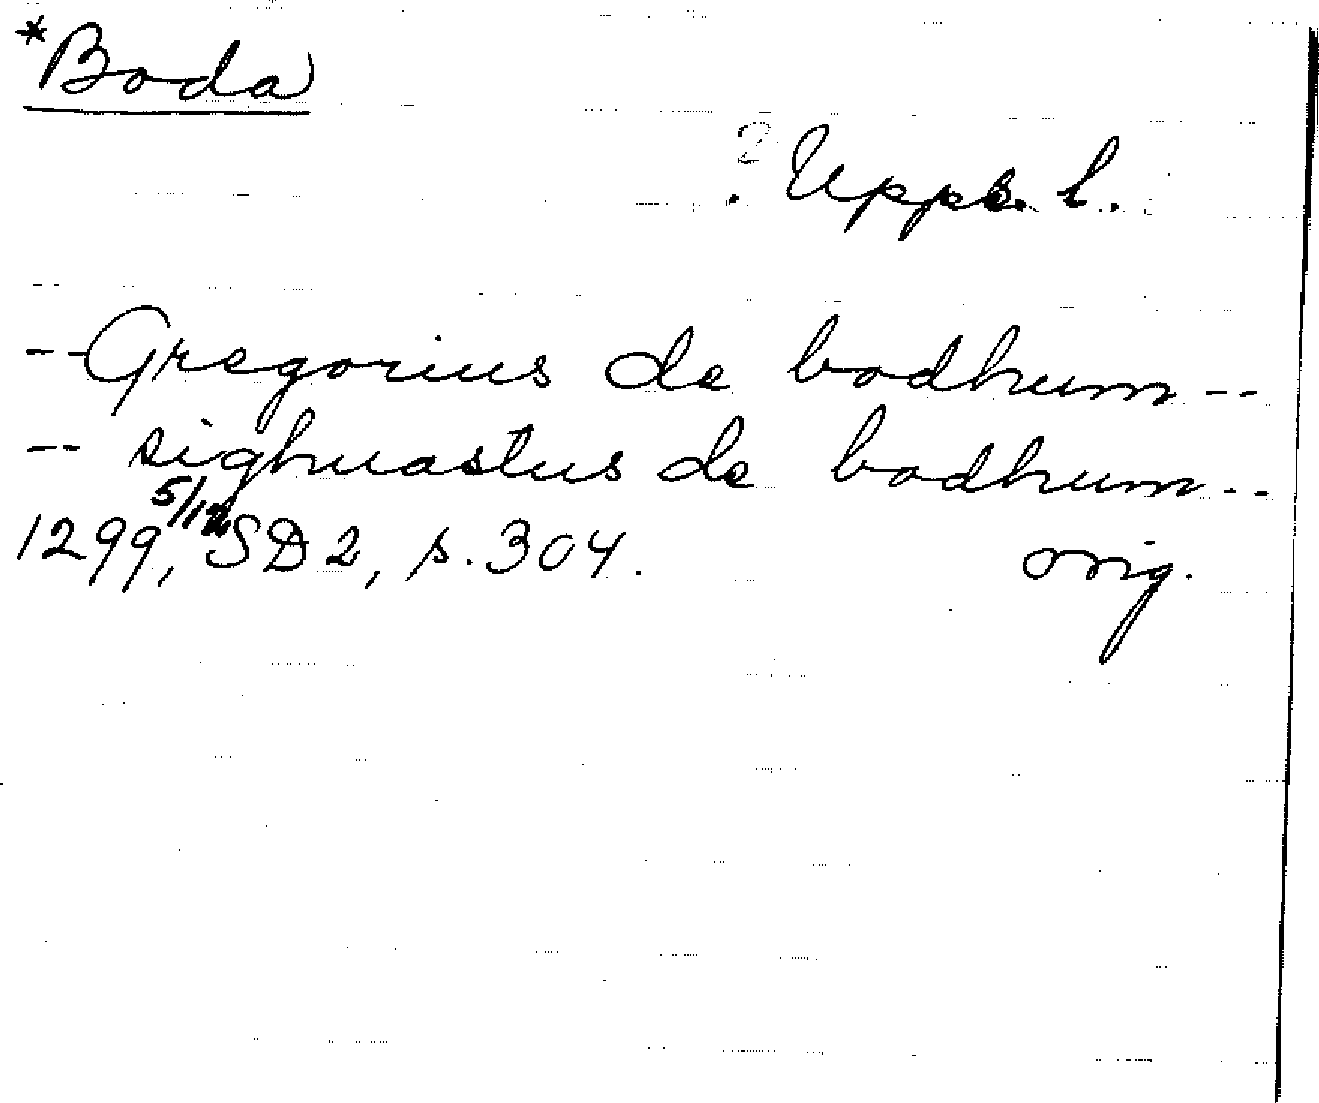 *Boda
? Uppl. l.
-- Gregorius de bodhum --
-- sighuastus de bodhum --
1299, 5/12 SD 2, s. 304. orig.